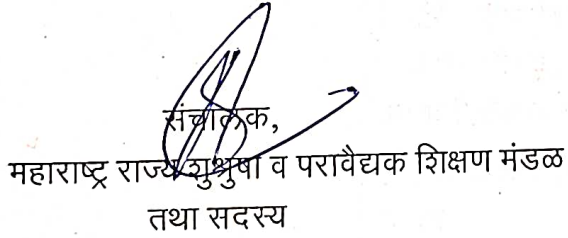 संचालक,
महाराष्ट्र राज्य शुश्रुषा व परावैद्यक शिक्षण मंडळ
तथा सदस्य